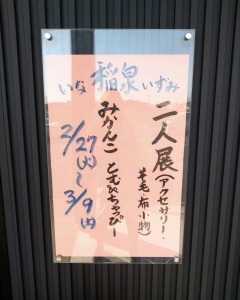 いな稲泉いずみ
二人展(アクセサリー・
羊毛・布小物)
みかんこ とむぶちゃっぴー
2/27(火)〜
3/9(月)